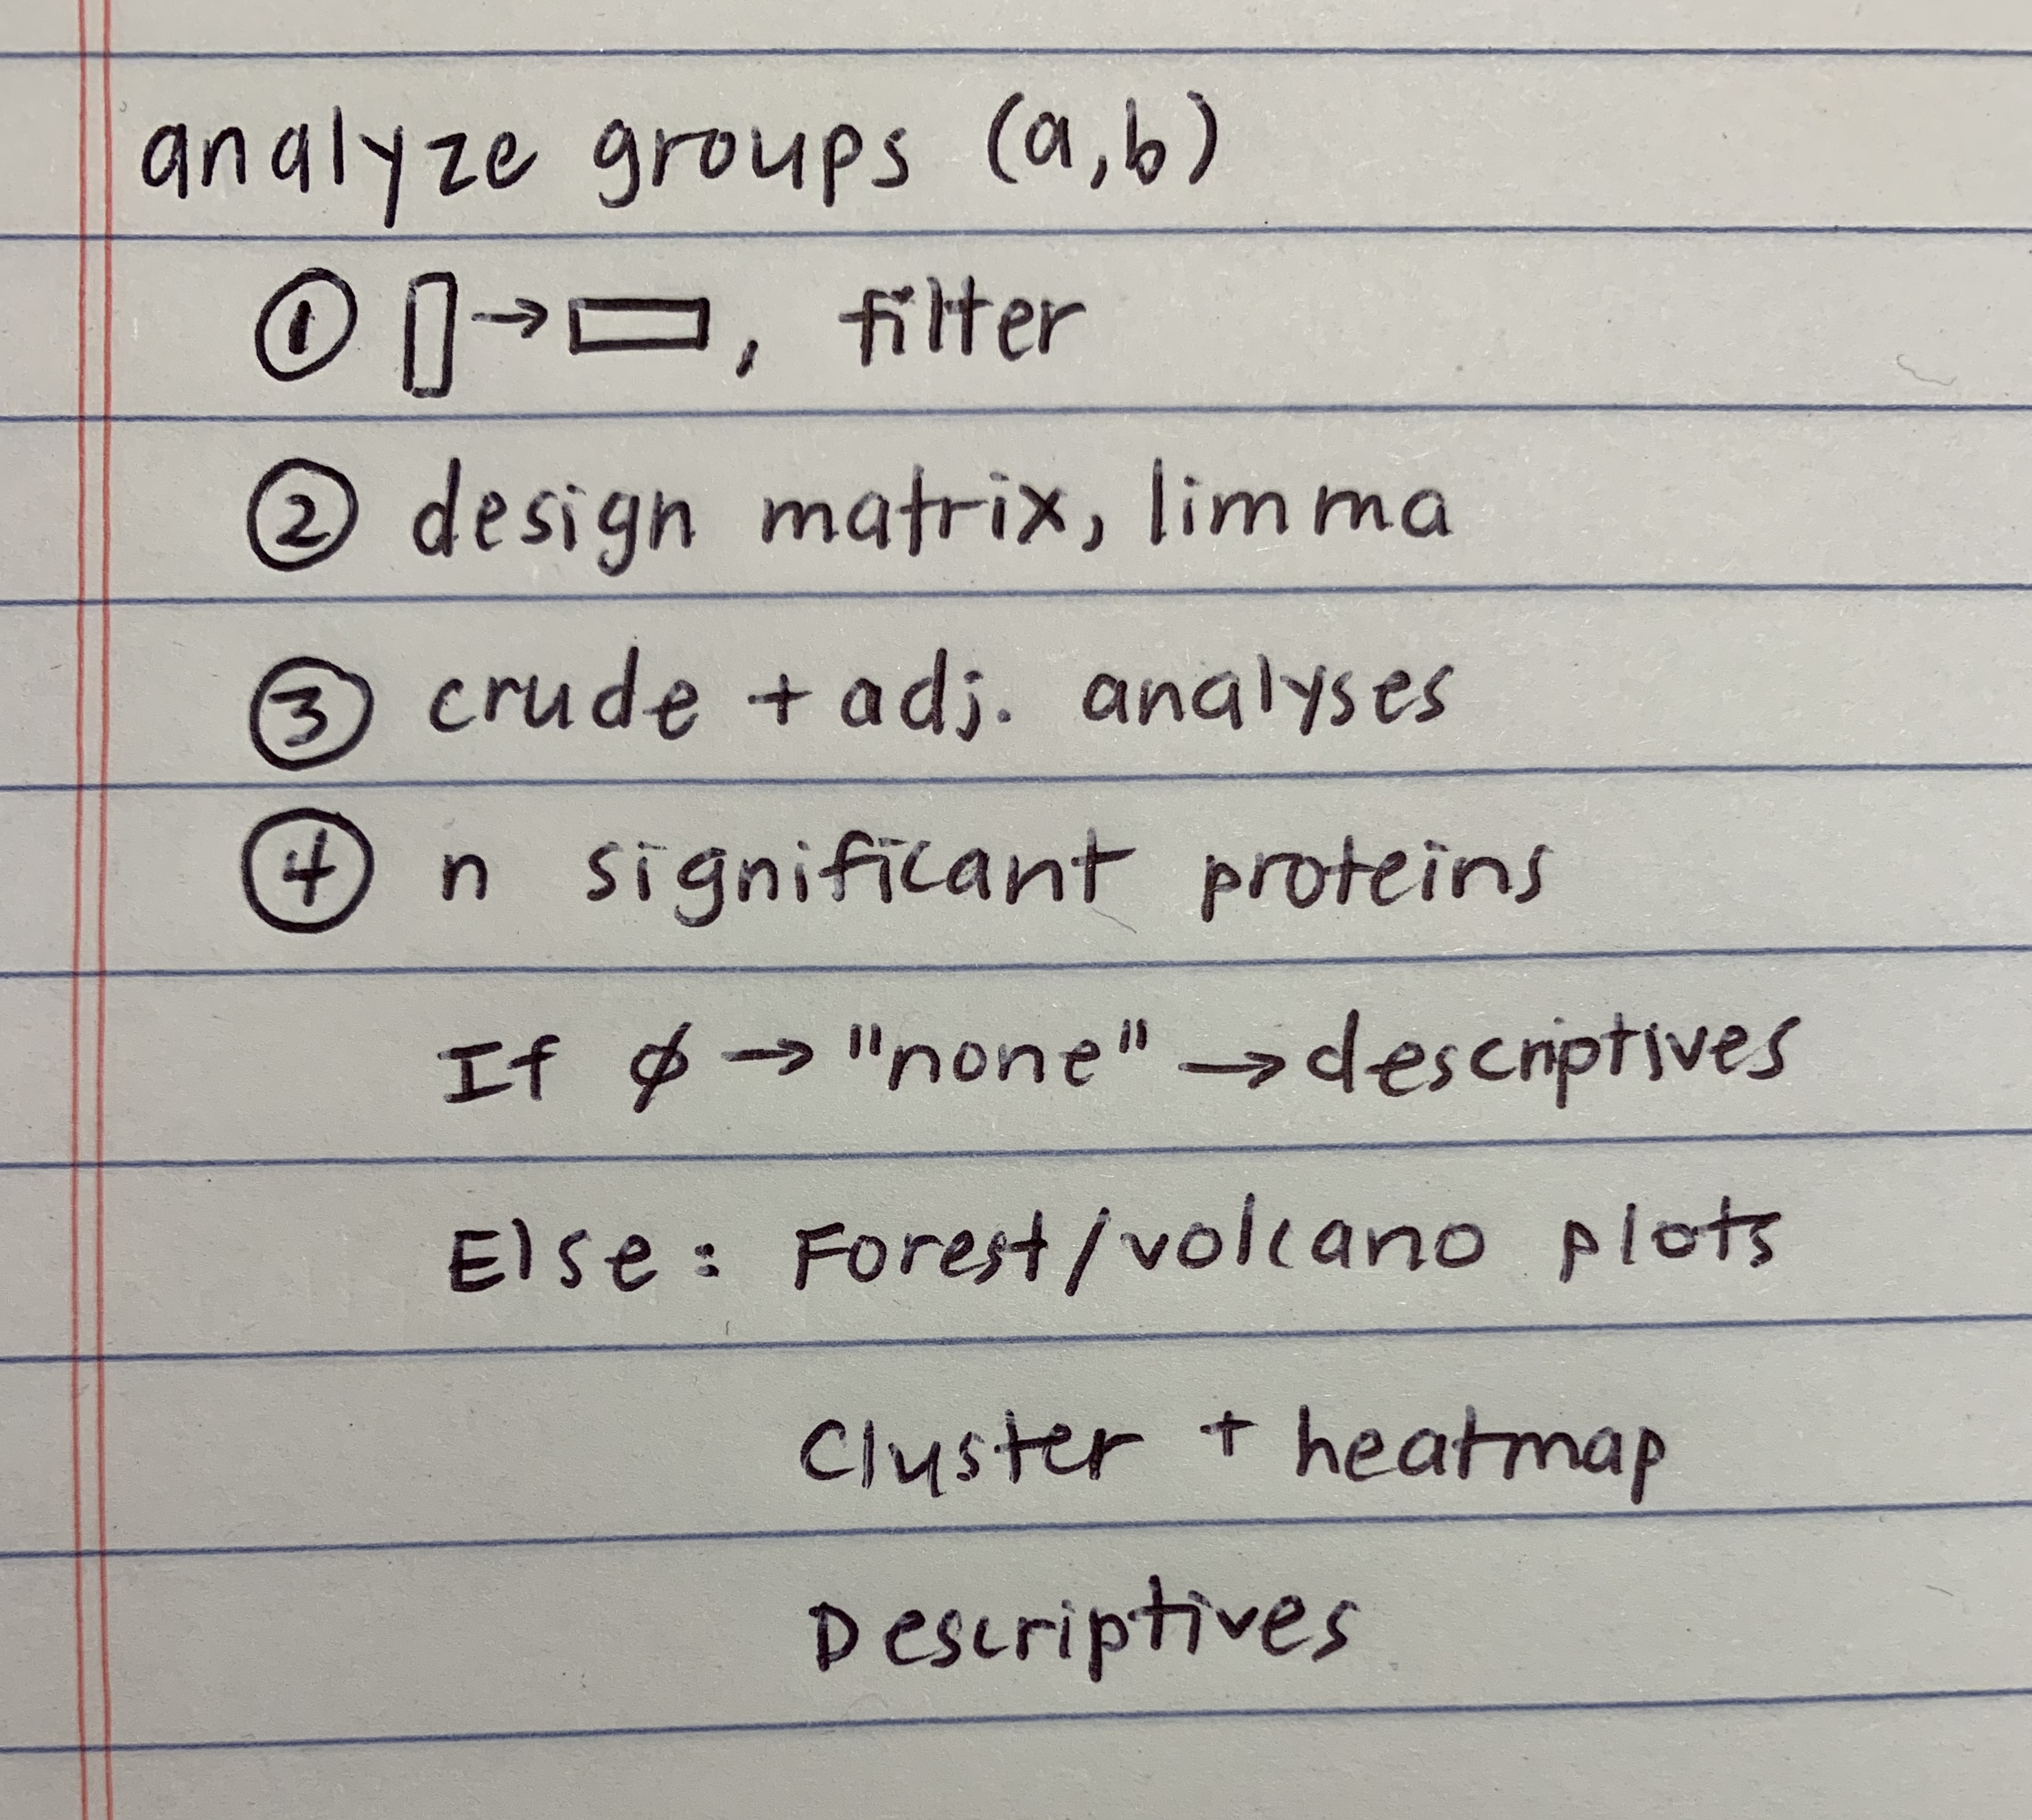 analyze groups (a,b)
① → , filter
② design matrix, limma
③ crude + adj. analyses
④ n significant proteins
If ∅ → "none" → descriptives
Else: Forest/volcano plots
Cluster + heatmap
Descriptives